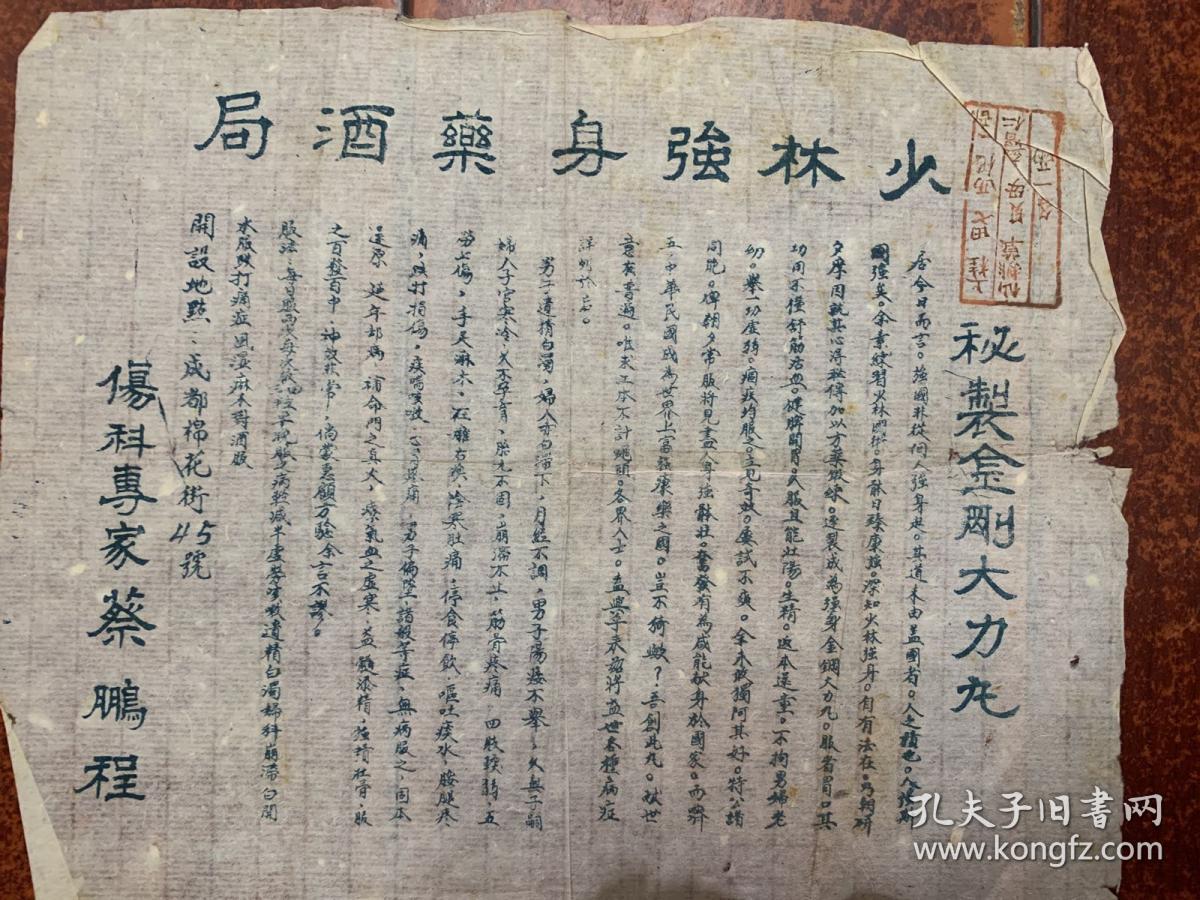 少林強身藥酒局
秘製金剛大力丸
居今日而言。強國非從個人強身起。其道未由蓋國者。人之積也。人強斯
國強矣。余素練習少林國術。身軀日臻康強。深知少林強身。自有法在。為朝研
夕摩因就其心得秘傳加以方藥煅煉。遂製成為強身金鋼大力丸。服省胃口其
功用不僅舒筋活血。健脾開胃。久服且能壯陽。生精。返本還童。不拘男婦老
幼。舉一切虛弱。痼疾均服之。立見奇效。屢試不爽。余未敢獨阿其好。特公諸
同胞。俾朝夕常服將見盡人身強軀壯。奮發有為咸能献身於國家。而躋
五中華民國成為世界上富強康樂之國。豈不猗歟？吾創此丸。救世
意在普遍。唯求工本不計蠅頭。各界人士。盍興乎來茲將盖世各種病症
詳列於右。
男子遺精白濁，婦人赤白帶下，月經不調，男子陽痿不舉，久無子嗣
婦人子宮寒冷久不孕育，胎元不固，崩漏不止，筋骨疼痛，四肢軟弱，五
勞七傷，手足麻木，左癱右瘓，陰寒肚痛，停食停飲，嘔吐痰水，腰腿疼
痛，跌打損傷，痰喘咳嗽，心胃疼痛，男子偏墜，諸般等症，無病服之，固本
還原，延年却病，補命門之真火，療氣血之虛寒，益髓添精，強精壯骨，服
之百發百中，神效非常，倘蒙惠顧方驗余言不謬。
服法，每日早晚兩次每次
水服跌打痛症風濕麻木對酒服
開設地點：成都棉花街45號
傷科專家蔡鵬程
孔夫子旧书网
www.kongfz.com